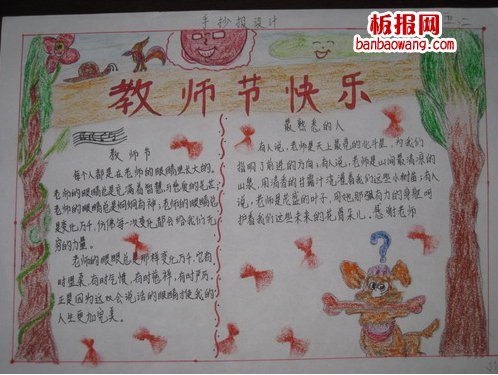 手抄报设计
板报网
banbaowang.com
教师节快乐
教师节
每个人都是在老师的眼睛里长大的。
老师的眼睛总是充满着智慧,
老师的眼睛总是炯炯有神;老师的眼睛总
是变化万千,仿佛每一次变化都会给我们无
穷的力量。
老师的眼睛总是那样变化万千,它有
时温柔,有时气愤,有时慈祥,有时严厉。
正是因为这双会说话的眼睛才使我的
人生更加完美。
最熟悉的人
有人说,老师是天上最亮的北斗星,为我们
指明了前进的方向;有人说,老师是山间最清凉的
山泉,用清香的甘露汁浇灌着我们这些小树苗;有人
说,老师是茂盛的叶子,用她那强有力的身躯呵
护着我们这些未来的花骨朵儿。感谢老师
?